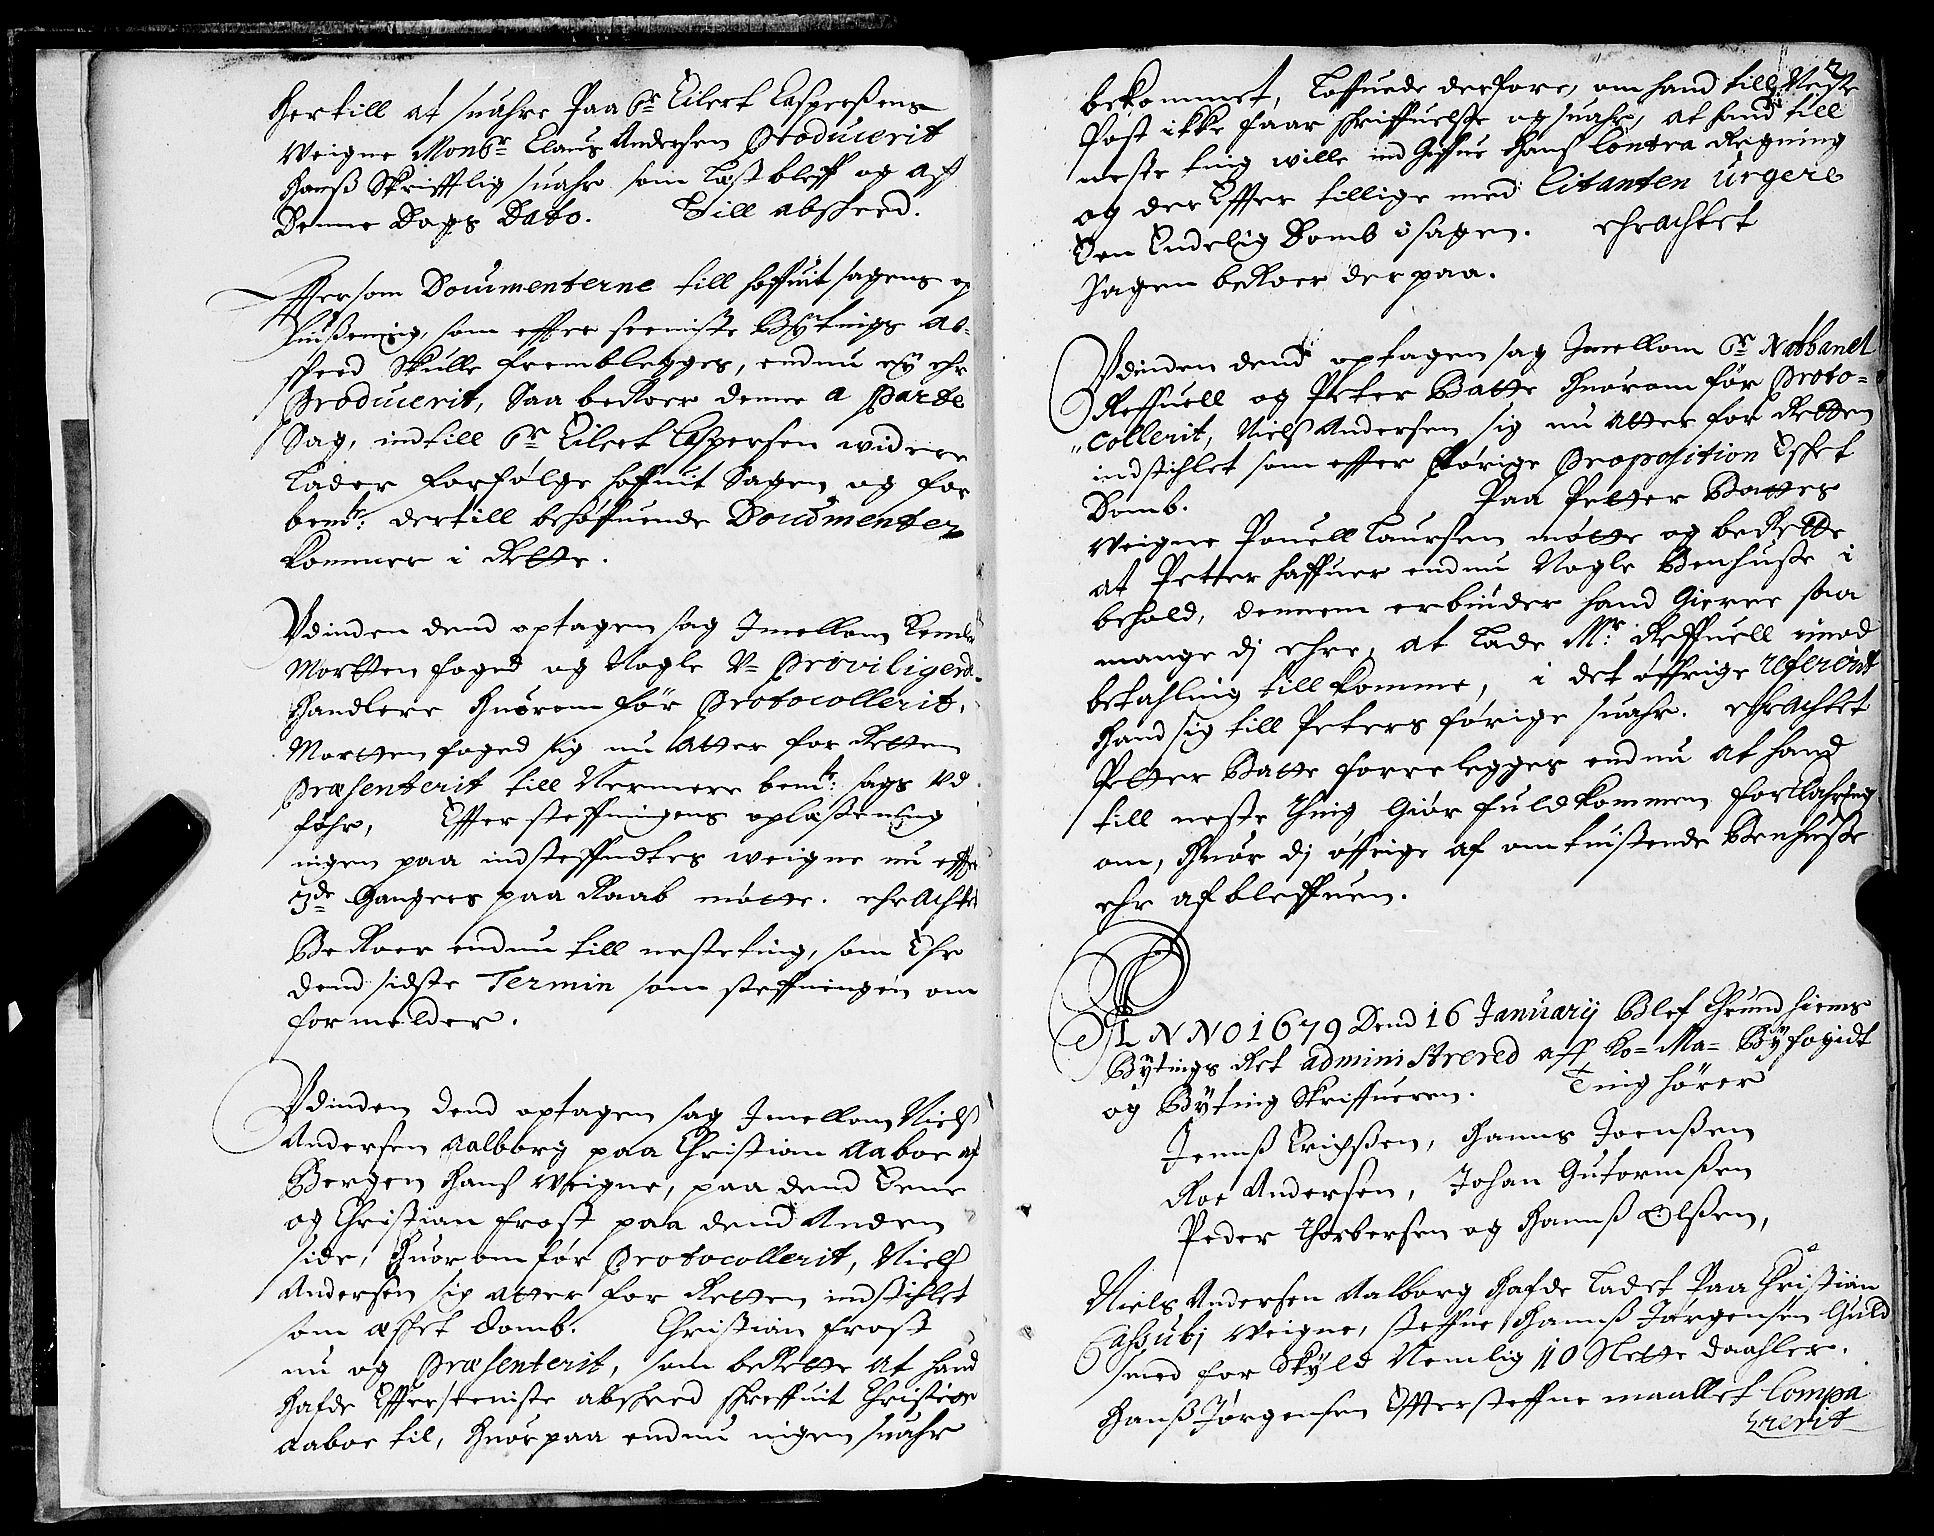 hertill at suahre Paa Sr Eilert Casperßens
weigne Monsr Claus Andersen Producerit
hanß Skrifftlig suahr som Læst bleff og aff
Denne Dags Dato. Till absheed.
Effter som Documenterne till hoffuit sagens op
liußening, som effter seeniste Bÿtings ab-
sheed Skulle fremblegges, endnu eÿ ehr
Producerit, Saa beRoer denne a parte
Sag, indtill Sr Eilert Caspersen widere
Lader forfølge hoffuit Sagen og for
bemte: dertill behøffuende Documenter
kommer i Rette.
Vdinden dend optagen sag Imellom
Mortten foged og Nogle V- Priviligerd
handlere huorom før Protocollerit,
Mortten foged sig nu atter for Retten
Præsenterit till Nermere bemte: sags vd
føhr, Effter steffningens oplæßening
ingen paa indsteffndtes weigne nu effter
3de Ganges paa Raab møtte. ehrachtet
BeRoer endnu till nesteting, som Ehr
dend sidste Termin som steffningen om
formelder.
Vdinden dend optagen sag Imellom Niels
Andersen Aalborg paa Christian Aaboe af
Bergen hans weigne, paa dend Eene
og Christian frost paa dend Anden
side, huorom før Protocollerit, Niels
Andersen sig atter for Retten indstihlet
som æsket domb. Christian frost
nu og Præsenterit, som beRette at hand
hafde Effter seeniste absheed skreffuit Christian
Aaboe til, huor paa endnu ingen suahr
2
bekommet, Loffuede derfore, om hand till Neste
Post ikke faar skriffuelse og suahr, at hand till
neste ting wille ind Giffue hans Contra Regning
og der Effter tillige med Citanten Urgere
Den Endelig Domb i sagen. ehrachtet
Sagen beRoer der paa.
Vdinden dend optagen sag Imellom Sr Nathanel
Reffuell og Peter Batte huorom før Proto-
collerit, Niels Andersen sig nu atter for Retten
indstihlet som effter forige Proposition Esket
Domb. Paa Petter Battes
weigne Pouell Laursen møtte og beRette
at Petter haffuer endnu Nogle Benhuße i
behold, dennem erbinder hand Gierne saa
mange dj ehre, at lade Mr: Reffuell imod
betahling tillkomme, i det øffrige referéret
hand sig till Peters forige suahr. ehrachtet
Petter Batte forrelegges endnu at hand
till neste Thing Giør fuldkommen forklahring
om, huor dj øffrige af omtuistende Benhuße
ehr afbleffuen.
ANNO 1679 Dend 16 Januarij Blef Thrundhiems
Bÿtings Ret administrered aff Ko- Ma- Bÿfogidt
og Bÿting Skriffueren. Ting hører
Jenß Erichßen, Hanns Joenßen
Roe Andersen, Johan Gutormßen
Peder Thorbersen og Hannß Olßen,
Niels Andersen Aalborg hafde ladet Paa Christian
Cassubj weigne, steffne Hannß Jørgensen Guld
smed for Skÿld Nemlig 110 Slette daahler.
Hanß Jørgensen Effter steffne maallet Compa
rerit